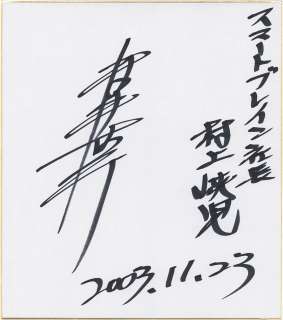 スマートブレイン社長
村上峡児
2003.11.23